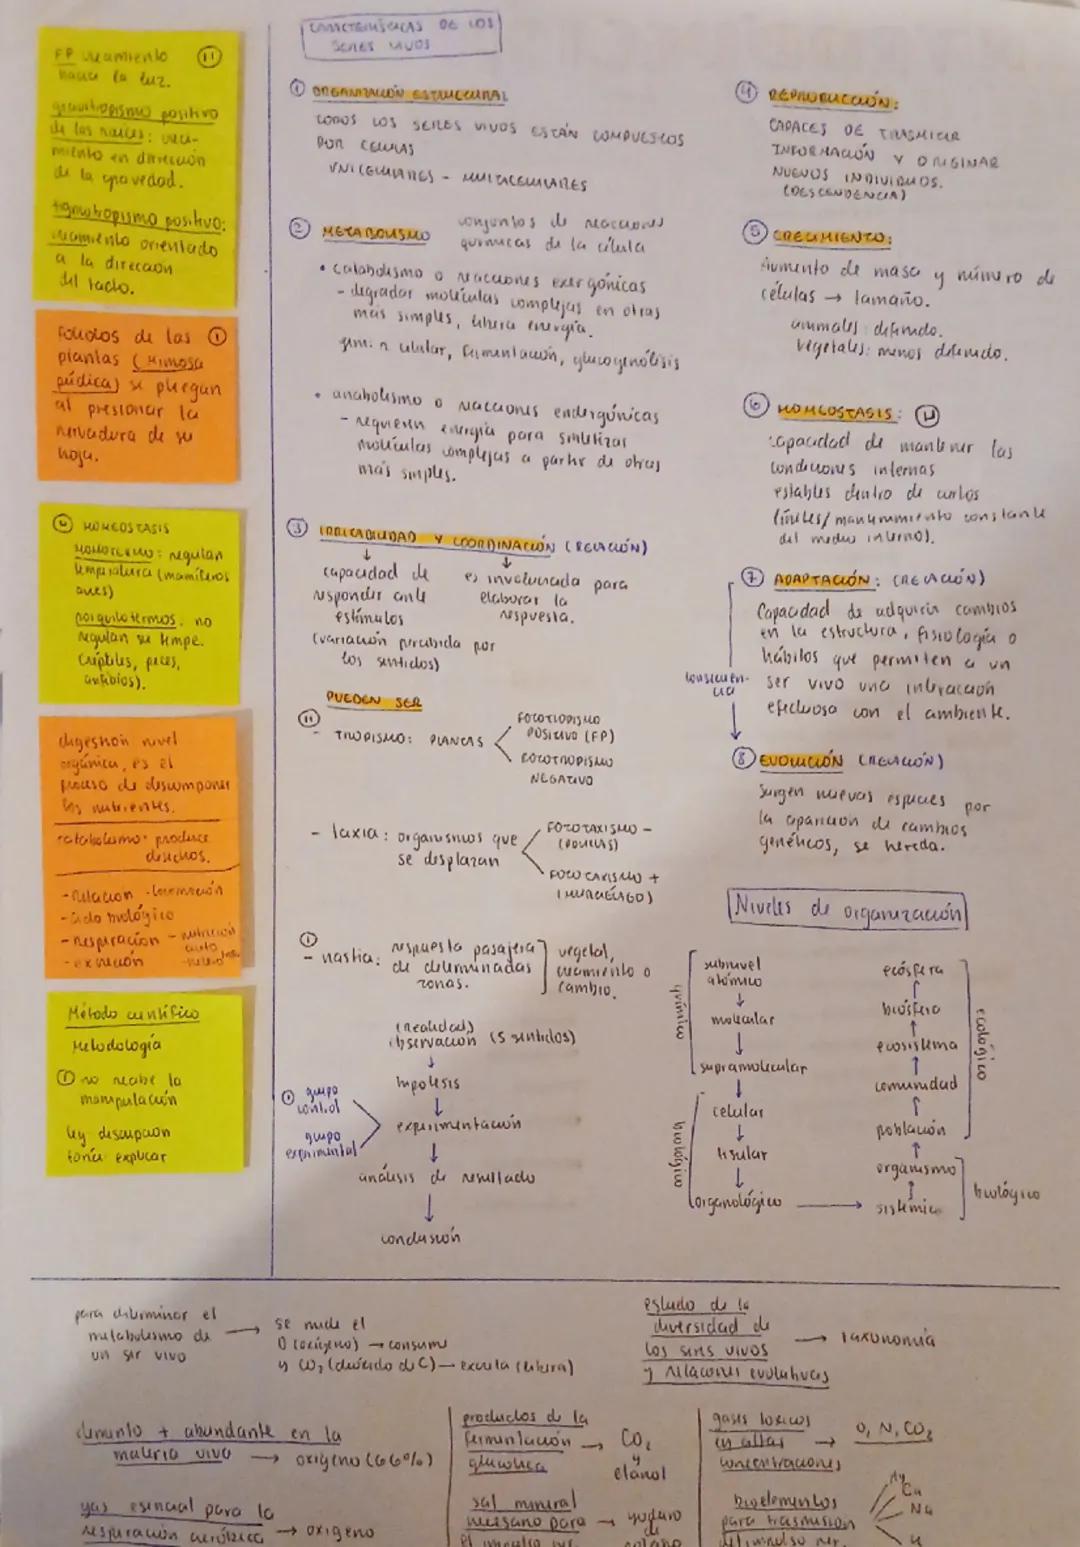 CARACTERÍSTICAS DE LOS
SERES VIVOS
FP crecimiento (11)
hacia la luz.
gravitropismo positivo
de las raíces: creci-
miento en dirección
de la gravedad.
tigmotropismo positivo:
crecimiento orientado
a la dirección
del tacto.
Foliolos de las (1)
plantas (Mimosa
púdica) se pliegan
al presionar la
nervadura de su
hoja.
HOMEOSTASIS
regulan
temperatura (mamíferos
aves)
poiquilotermos: no
regulan su tempe.
(reptiles, peces,
anfibios).
digestión nivel
orgánica, es el
proceso de descomponer
los nutrientes.
catabolismo: produce
desechos.
- Relación - locomoción
- ciclo biológico
- respiración - nutrición
auto
- excreción - hetero
Método científico
Metodología
(1) no recibe la
manipulación
ley descripción
teoría explicar
① ORGANIZACIÓN ESTRUCTURAL
TODOS LOS SERES VIVOS ESTÁN COMPUESTOS
POR CELULAS
UNICELULARES - MULTICELULARES
② METABOLISMO conjuntos de reacciones
químicas de la célula
• catabolismo o reacciones exergónicas
- degradar moléculas complejas en otras
más simples, libera energía.
celular, fermentación, glucogenólisis
• anabolismo o reacciones endergónicas
- requieren energía para sintetizar
moléculas complejas a partir de otras
más simples.
③ IRRITABILIDAD Y COORDINACIÓN (RELACIÓN)
↓ ↓
capacidad de es involucrada para
responder ante elaborar la
estímulos respuesta.
(variación percibida por
los sentidos)
PUEDEN SER
(11)
- TROPISMO: PLANTAS
FOTOTROPISMO
POSITIVO (FP)
FOTOTROPISMO
NEGATIVO
- taxia: organismos que
se desplazan
FOTOTAXISMO -
(POLILLAS)
FOTOTAXISMO +
(MURCIÉLAGO)
(1)
- nastia: respuesta pasajera
de determinadas
zonas.
vegetal,
crecimiento o
cambio.
(realidad)
observación (5 sentidos)
↓
hipótesis
↓
(1) grupo
control
grupo
experimental
experimentación
↓
análisis de resultado
↓
conclusión
④ REPRODUCCIÓN:
CAPACES DE TRASMITIR
INFORMACIÓN Y ORIGINAR
NUEVOS INDIVIDUOS.
(DESCENDENCIA)
⑤ CRECIMIENTO:
Aumento de masa y número de
células → tamaño.
animales: definido.
vegetales: menos definido.
⑥ HOMEOSTASIS:
capacidad de mantener las
condiciones internas
estables dentro de ciertos
límites/mantenimiento constante
del medio interno).
⑦ ADAPTACIÓN: (RELACIÓN)
Capacidad de adquirir cambios
en la estructura, fisiología o
hábitos que permiten a un
ser vivo una interacción
efectuosa con el ambiente.
consecuen-
cia
⑧ EVOLUCIÓN (RELACIÓN)
Surgen nuevas especies por
la aparición de cambios
genéticos, se hereda.
Niveles de organización
químico
subnivel
atómico
↓
molecular
↓
supramolecular
↓
biológico
celular
↓
tisular
↓
organológico → sistémico
↑
organismo
biológico
↑
población
↑
comunidad
↑
ecosistema
↑
biósfera
↑
ecósfera
ecológico
para determinar el
metabolismo de
un ser vivo
→ se mide el
O (oxígeno) → consume
y CO₂ (dióxido de C) → excreta (libera)
estudo de la
diversidad de
los seres vivos
y relaciones evolutivas
→ taxonomía
elemento + abundante en la
materia viva → oxígeno (66%)
gas esencial para la
respiración aeróbica → oxígeno
productos de la
fermentación
→ CO₂
y
etanol
sal mineral
necesario para → yoduro
de
gases tóxicos
en altas
concentraciones
→ O, N, CO₂
bioelementos
para trasmisión
del impulso ner.
Ca
Na